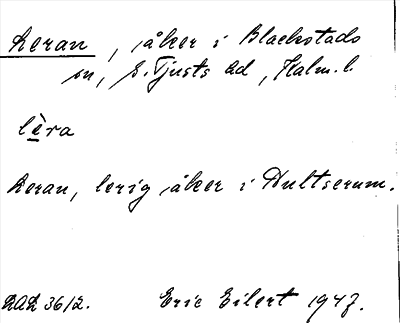 Leran, åker i Blackstads
sn, S. Tjusts hd, Kalm. l.
lèra
Leran, lerig åker i Hultserum.
36/2. Eric Eilert 1947.